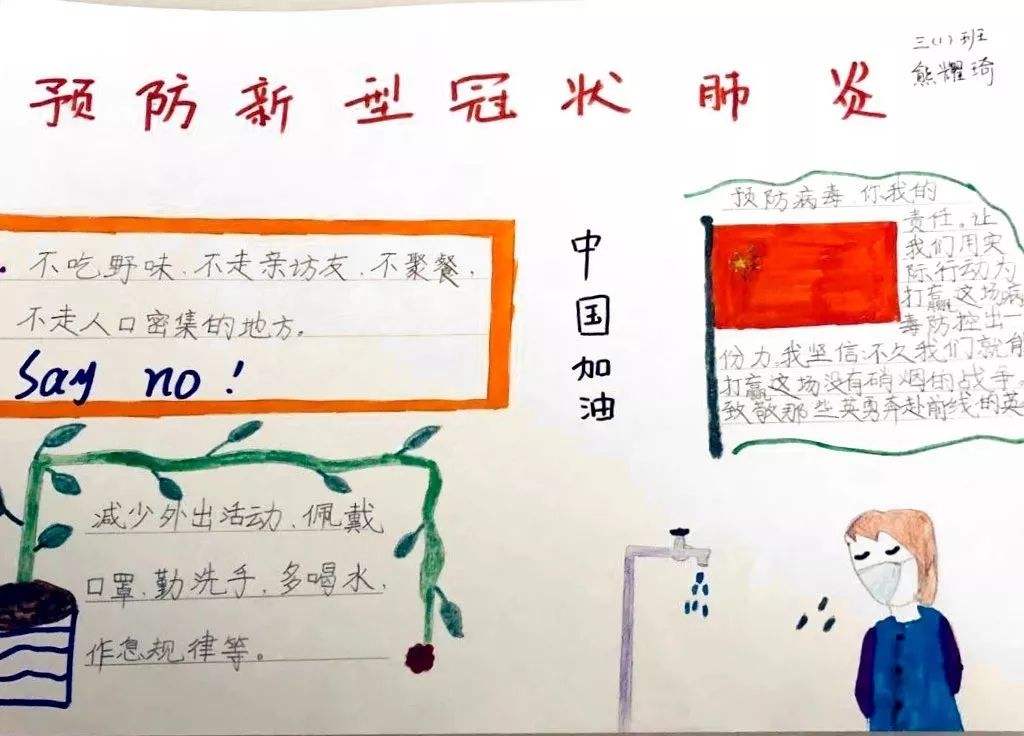 三(1)班
熊耀琦
预防新型冠状肺炎
不吃野味、不走亲坊友、不聚餐、
不走人口密集的地方。
Say no!
中国加油
预防病毒 你我的
责任。让
我们用实
际行动为
打赢这场病
毒防控出一
份力,我坚信:不久我们就能
打赢这场没有硝烟的战争。
致敬那些英勇奔赴前线的英
减少外出活动、佩戴
口罩、勤洗手、多喝水、
作息规律等。